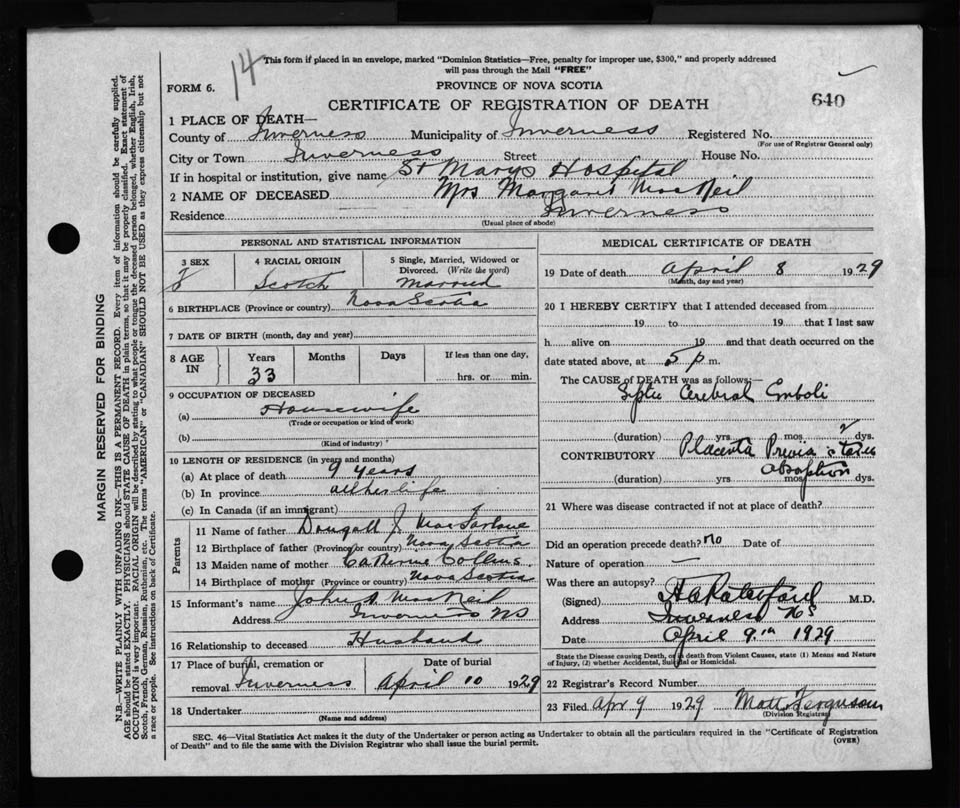 This form if placed in an envelope, marked "Dominion Statistics—Free, penalty for improper use, $300," and properly addressed
will pass through the Mail "FREE"
14
FORM 6.
PROVINCE OF NOVA SCOTIA
CERTIFICATE OF REGISTRATION OF DEATH
640
1 PLACE OF DEATH—
County of Inverness Municipality of Inverness Registered No.
(For use of Registrar General only)
City or Town Inverness Street House No.
If in hospital or institution, give name St Marys Hospital
2 NAME OF DECEASED Mrs Margaret MacNeil
Residence Inverness
(Usual place of abode)
PERSONAL AND STATISTICAL INFORMATION
3 SEX F
4 RACIAL ORIGIN Scotch
5 Single, Married, Widowed or Divorced. (Write the word) Married
6 BIRTHPLACE (Province or country) Nova Scotia
7 DATE OF BIRTH (month, day and year)
8 AGE IN Years Months Days If less than one day,
33 hrs. or min.
9 OCCUPATION OF DECEASED
(a) Housewife
(Trade or occupation or kind of work)
(b)
(Kind of industry)
10 LENGTH OF RESIDENCE (in years and months)
(a) At place of death 9 years
(b) In province all her life
(c) In Canada (if an immigrant)
Parents
11 Name of father Dougall J MacFarlane
12 Birthplace of father (Province or country) Nova Scotia
13 Maiden name of mother Catherine Collins
14 Birthplace of mother (Province or country) Nova Scotia
15 Informant's name John A MacNeil
Address Inverness NS
16 Relationship to deceased Husband
17 Place of burial, cremation or Date of burial
removal Inverness April 10 1929
18 Undertaker
(Name and address)
MEDICAL CERTIFICATE OF DEATH
19 Date of death April 8 1929
(Month, day and year)
20 I HEREBY CERTIFY that I attended deceased from
19 to 19 that I last saw
h alive on 19 and that death occurred on the
date stated above, at 5 p m.
The CAUSE of DEATH was as follows:—
Septic Cerebral Emboli
(duration) yrs. mos. 2 dys.
CONTRIBUTORY Placenta Previa
(duration) yrs. mos. dys.
absorption
21 Where was disease contracted if not at place of death?
Did an operation precede death? No Date of
Nature of operation —
Was there an autopsy?
(Signed) M.D.
Address Inverness NS
Date April 9th 1929
State the Disease causing Death, or in death from Violent Causes, state (1) Means and Nature
of Injury, (2) whether Accidental, Suicidal or Homicidal.
22 Registrar's Record Number
23 Filed Apr 9 1929 Matt Fergusson
(Division Registrar)
SEC. 46—Vital Statistics Act makes it the duty of the Undertaker or person acting as Undertaker to obtain all the particulars required in the "Certificate of Registration
of Death" and to file the same with the Division Registrar who shall issue the burial permit.
(OVER)
MARGIN RESERVED FOR BINDING
N.B.—WRITE PLAINLY WITH UNFADING INK—THIS IS A PERMANENT RECORD. Every item of information should be carefully supplied.
AGE should be stated EXACTLY. PHYSICIANS should STATE CAUSE OF DEATH in plain terms, so that it may be properly classified. Exact statement of
OCCUPATION is very important. RACIAL ORIGIN will be described by stating to what people or tongue the deceased person belonged, whether English, Irish,
Scotch, French, German, Russian, Ruthenian, etc. The terms "AMERICAN" or "CANADIAN" SHOULD NOT BE USED as they express citizenship but not
a race or people. See instructions on back of Certificate.